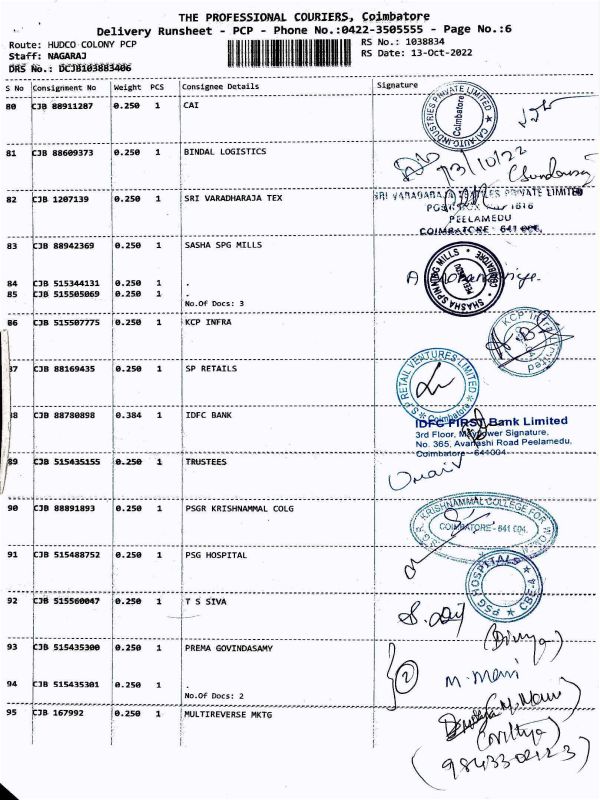 THE PROFESSIONAL COURIERS, Coimbatore
Delivery Runsheet - PCP - Phone No.:0422-3505555 - Page No.:6
Route: HUDCO COLONY PCP RS No.: 1038834
Staff: NAGARAJ RS Date: 13-Oct-2022
DRS No.: DCJB103883406
S No Consignment No Weight PCS Consignee Details Signature
80 CJB 88911287 0.250 1 CAI
CAI AUTO INDUSTRIES PRIVATE LIMITED
Coimbatore
81 CJB 88609373 0.250 1 BINDAL LOGISTICS
13/10/22
82 CJB 1207139 0.250 1 SRI VARADHARAJA TEX
PRIVATE LIMITED
PEELAMEDU
COIMBATORE - 641 004.
83 CJB 88942369 0.250 1 SASHA SPG MILLS
SHASHA SPINNING MILLS
PEELAMEDU
COIMBATORE
84 CJB 515344131 0.250 1 .
85 CJB 515505069 0.250 1 .
No.Of Docs: 3
86 CJB 515507775 0.250 1 KCP INFRA
KCP Infra Limited
87 CJB 88169435 0.250 1 SP RETAILS
S P RETAIL VENTURES LIMITED
Coimbatore
88 CJB 88780898 0.384 1 IDFC BANK
IDFC FIRST Bank Limited
3rd Floor, Maypower Signature,
No. 365, Avanashi Road Peelamedu,
Coimbatore - 641004
89 CJB 515435155 0.250 1 TRUSTEES
90 CJB 88891893 0.250 1 PSGR KRISHNAMMAL COLG
KRISHNAMMAL COLLEGE FOR WOMEN
COIMBATORE - 641 004.
91 CJB 515488752 0.250 1 PSG HOSPITAL
PSG HOSPITALS
CBE-4
92 CJB 515560047 0.250 1 T S SIVA
(Divya)
93 CJB 515435300 0.250 1 PREMA GOVINDASAMY
2
M. Mani
94 CJB 515435301 0.250 1 .
No.Of Docs: 2
95 CJB 167992 0.250 1 MULTIREVERSE MKTG
(Nithya)